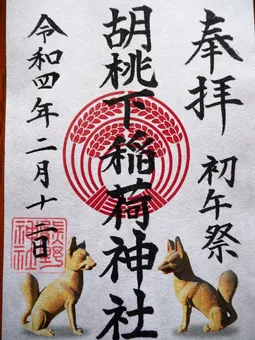 奉拝
初午祭
胡桃下稲荷神社
令和四年二月十一日